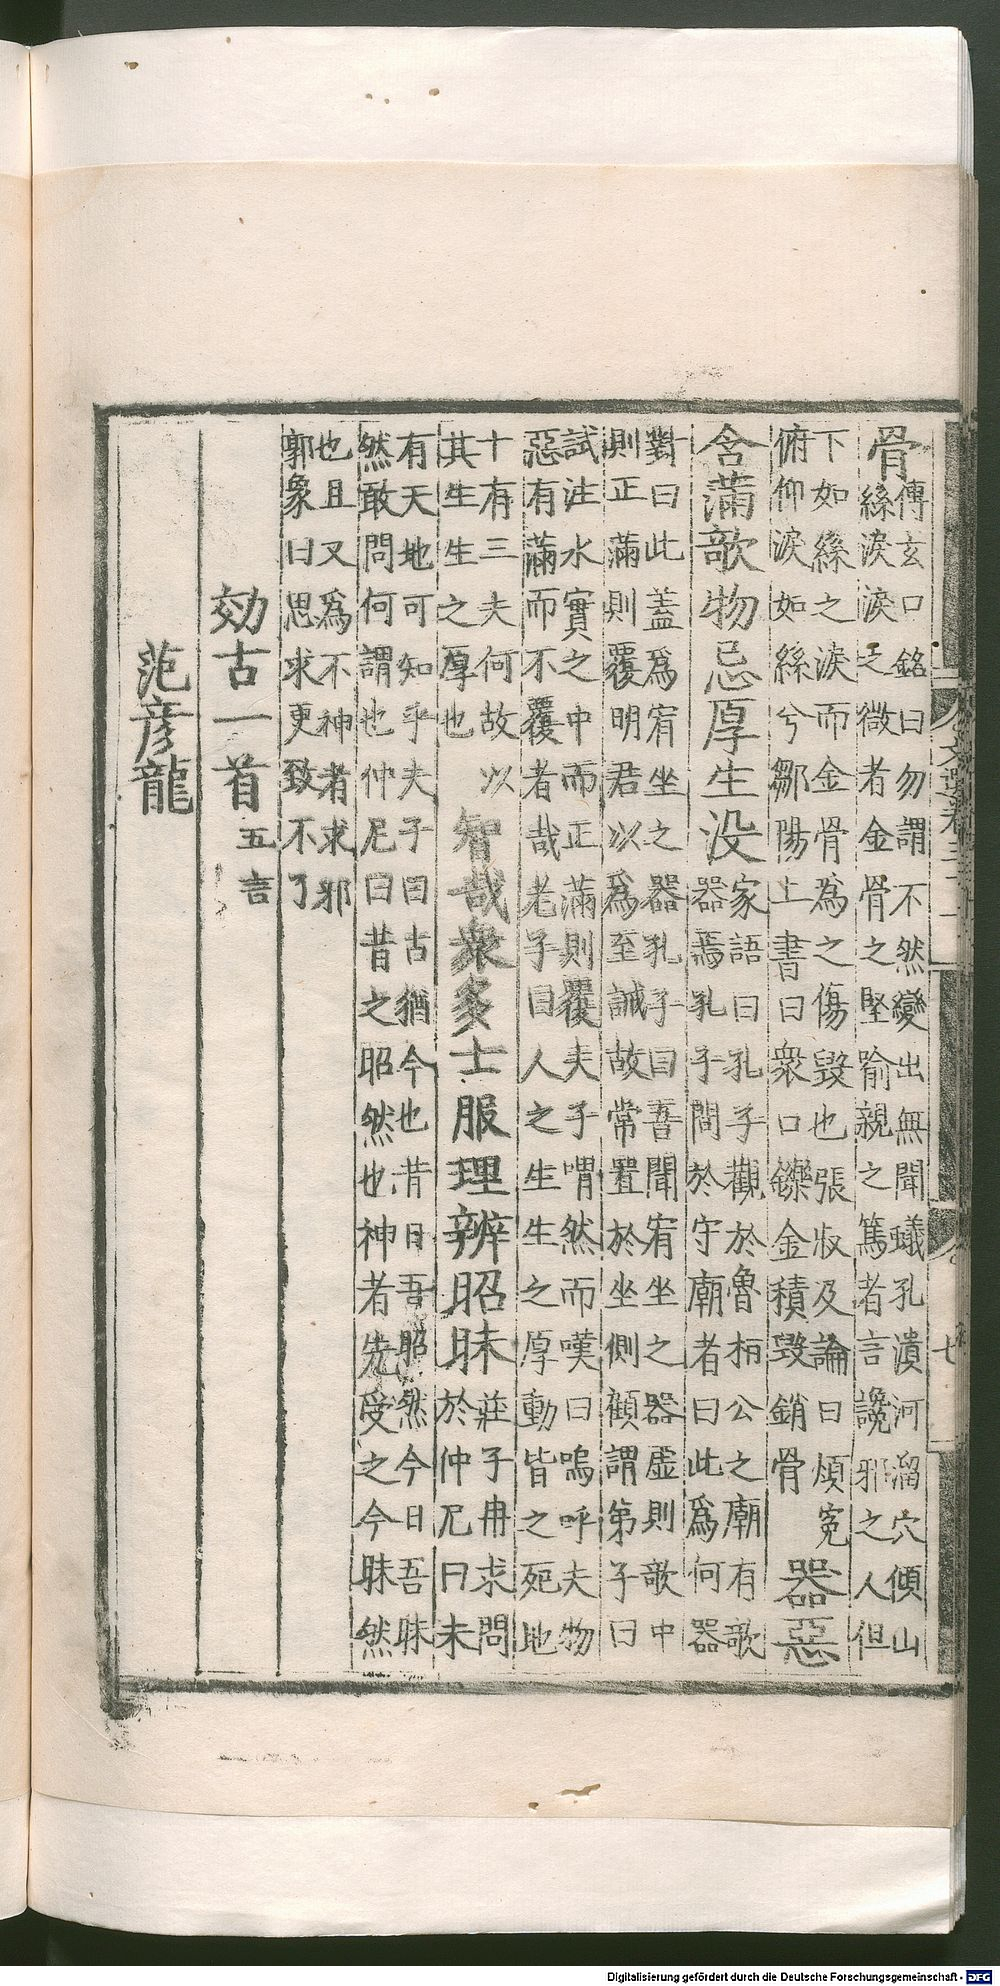 文選卷三十一
七
骨
傳玄口銘曰勿謂不然變出無聞蟻孔潰河溜穴傾山
絲淚淚之微者金骨之堅喻親之篤者言讒邪之人但
下如絲之淚而金骨為之傷毀也張叔及論曰煩寃
俯仰淚如絲兮鄒陽上書曰衆口鑠金積毀銷骨
器惡
含滿欹物忌厚生没
家語曰孔子觀於魯栢公之廟有欹
器焉孔子問於守廟者曰此爲何器
對曰此蓋爲宥坐之器孔子曰吾聞宥坐之器虛則欹中
則正滿則覆明君以爲至誠故常置於坐側顧謂第子曰
試注水實之中而正滿則覆夫子喟然而嘆曰嗚呼夫物
惡有滿而不覆者哉老子曰人之生生之厚動皆之死地
十有三夫何故以
其生生之厚也
智哉衆多士服理辨昭昧
莊子冉求問
於仲尼曰未
有天地可知乎夫子曰古猶今也昔日吾昭然今日吾昧
然敢問何謂也仲尼曰昔之昭然也神者先受之今昧然
也且又爲不神者求邪
郭象曰思求更致不了
効古一首五言
范彦龍
Digitalisierung gefördert durch die Deutsche Forschungsgemeinschaft - DFG